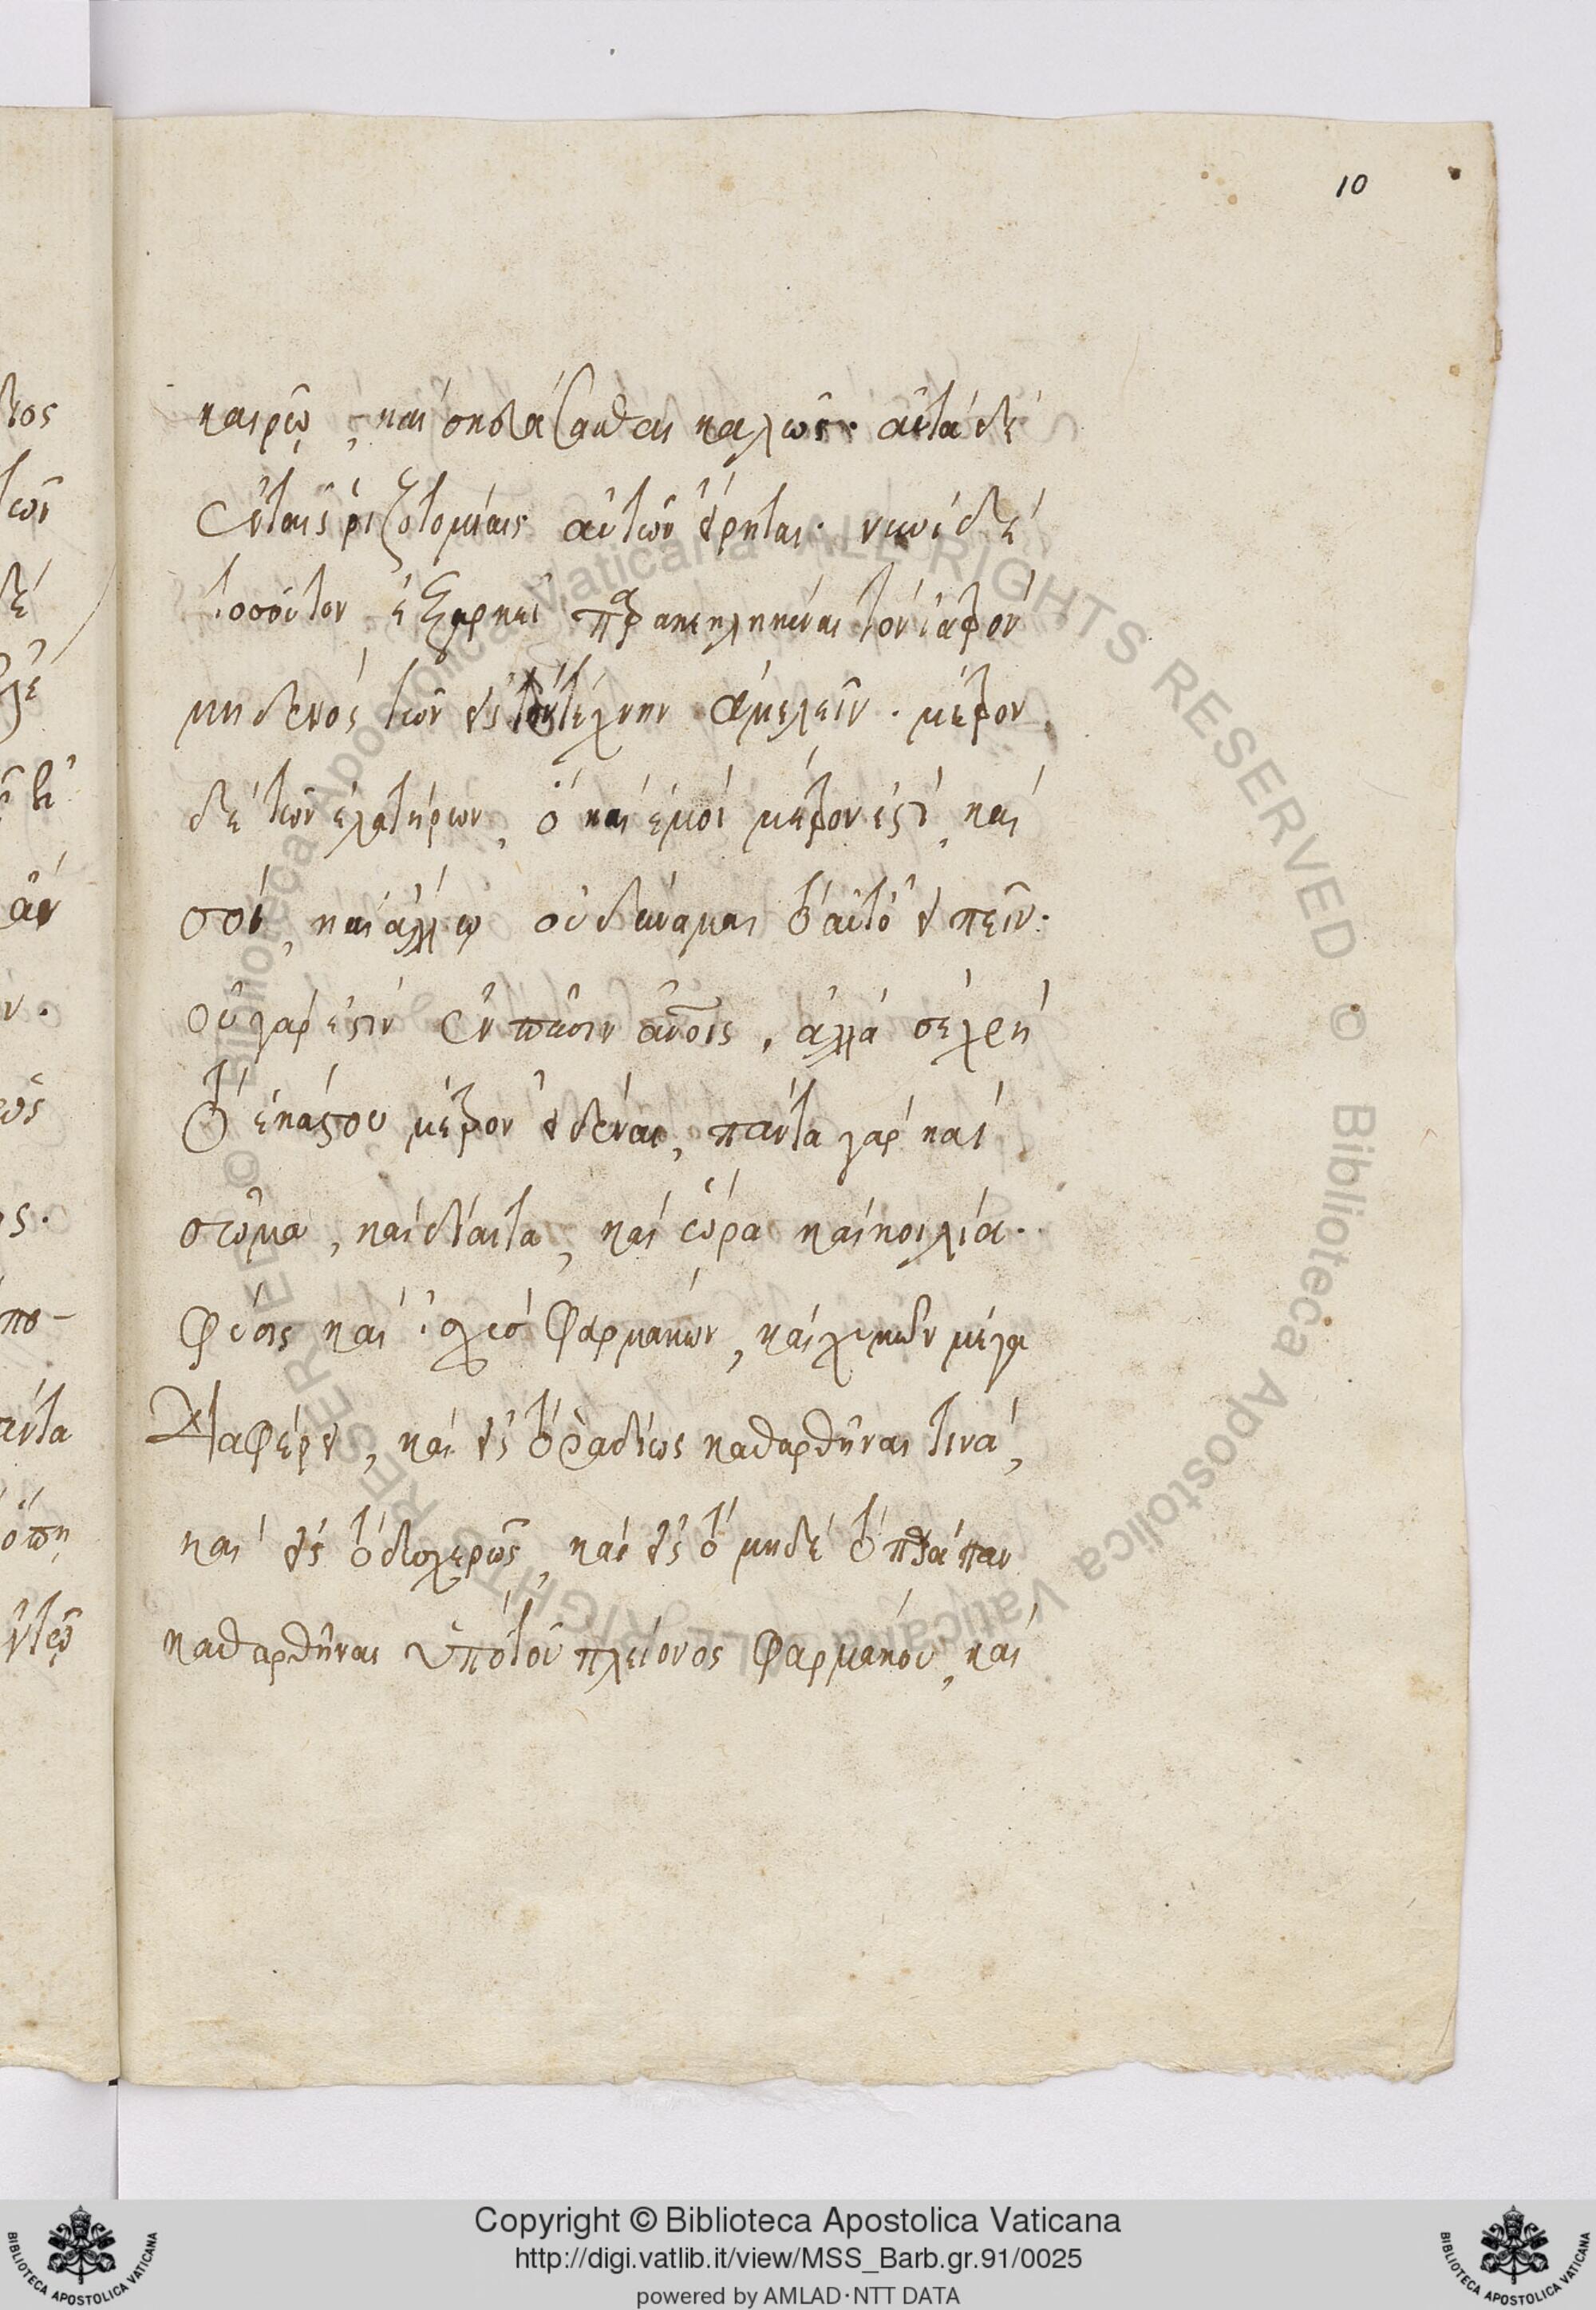 10
καιρῷ, καὶ σκευάζεσθαι καλῶς. αὐτὰ δὲ
ἐν ταῖς ῥιζοτομίαις αὐτῶν εἴρηται. νυνὶ δὲ
τοσοῦτον ἐξαρκεῖ παρακεκληκέναι τὸν ἰατρὸν
μηδενὸς τῶν εἰς τὴν τέχνην ἀμελεῖν. μέτρον
δὲ τῶν ἐλατηρίων, ὃ καὶ ἐμοὶ μέτρον ἐστὶ, καὶ
σοὶ, καὶ ἄλλῳ οὐ δύναμαι τὸ αὐτὸ εἰπεῖν.
οὐ γάρ ἐστιν ἐν πᾶσιν ἀνοις, ἀλλὰ σὲ χρὴ
τὸ ἑκάστου μέτρον εἰδέναι, πάντα γὰρ καὶ
στόμα, καὶ δίαιτα, καὶ ὥρα καὶ κοιλία.
φύσις καὶ ἰσχὺς φαρμάκων, καὶ χυμῶν μέγα
διαφέρει, καὶ εἰς τὸ ῥαδίως καθαρθῆναι τινὰ,
καὶ εἰς τὸ δυσχερῶς, καὶ εἰς τὸ μηδὲ τὸ παράπαν
καθαρθῆναι ὑπὸ τοῦ πλείονος φαρμάκου, καὶ
Copyright © Biblioteca Apostolica Vaticana
http://digi.vatlib.it/view/MSS_Barb.gr.91/0025
powered by AMLAD·NTT DATA
BIBLIOTECA APOSTOLICA VATICANA
BIBLIOTECA APOSTOLICA VATICANA
© Biblioteca Apostolica Vaticana ALL RIGHTS RESERVED © Biblioteca Apostolica Vaticana ALL RIGHTS RESERVED